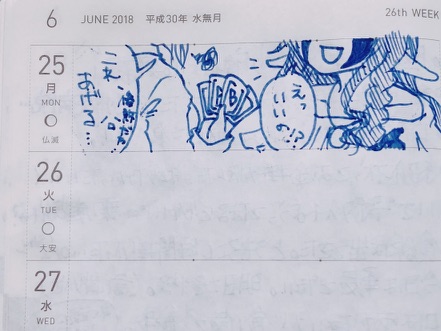 6 JUNE 2018 平成30年 水無月 26th WEEK
25
月
MON
仏滅
これ、
あげる…
えっ
いいの!?
26
火
TUE
大安
27
水
WED